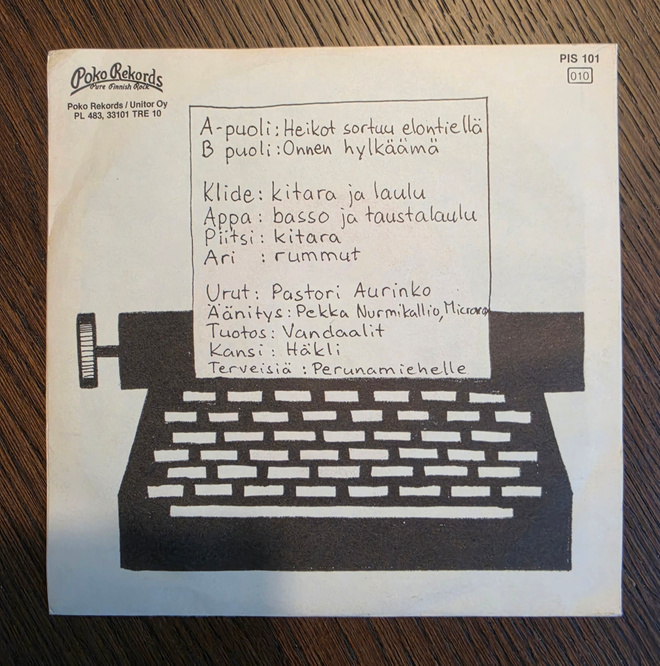 Poko Rekords
Pure Finnish Rock
Poko Rekords / Unitor Oy
PL 483, 33101 TRE 10
PIS 101
010
A-puoli: Heikot sortuu elontiellä
B puoli: Onnen hylkäämä
Klide: kitara ja laulu
Appa: basso ja taustalaulu
Piitsi: kitara
Ari : rummut
Urut: Pastori Aurinko
Äänitys: Pekka Nurmikallio, Microvox
Tuotos: Vandaalit
Kansi: Häkli
Terveisiä: Perunamiehelle